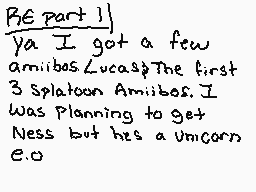 RE part 1
ya I got a few
amiibos. Lucas & The first
3 splatoon Amiibos. I
was Planning to get
Ness but hes a unicorn
e.o